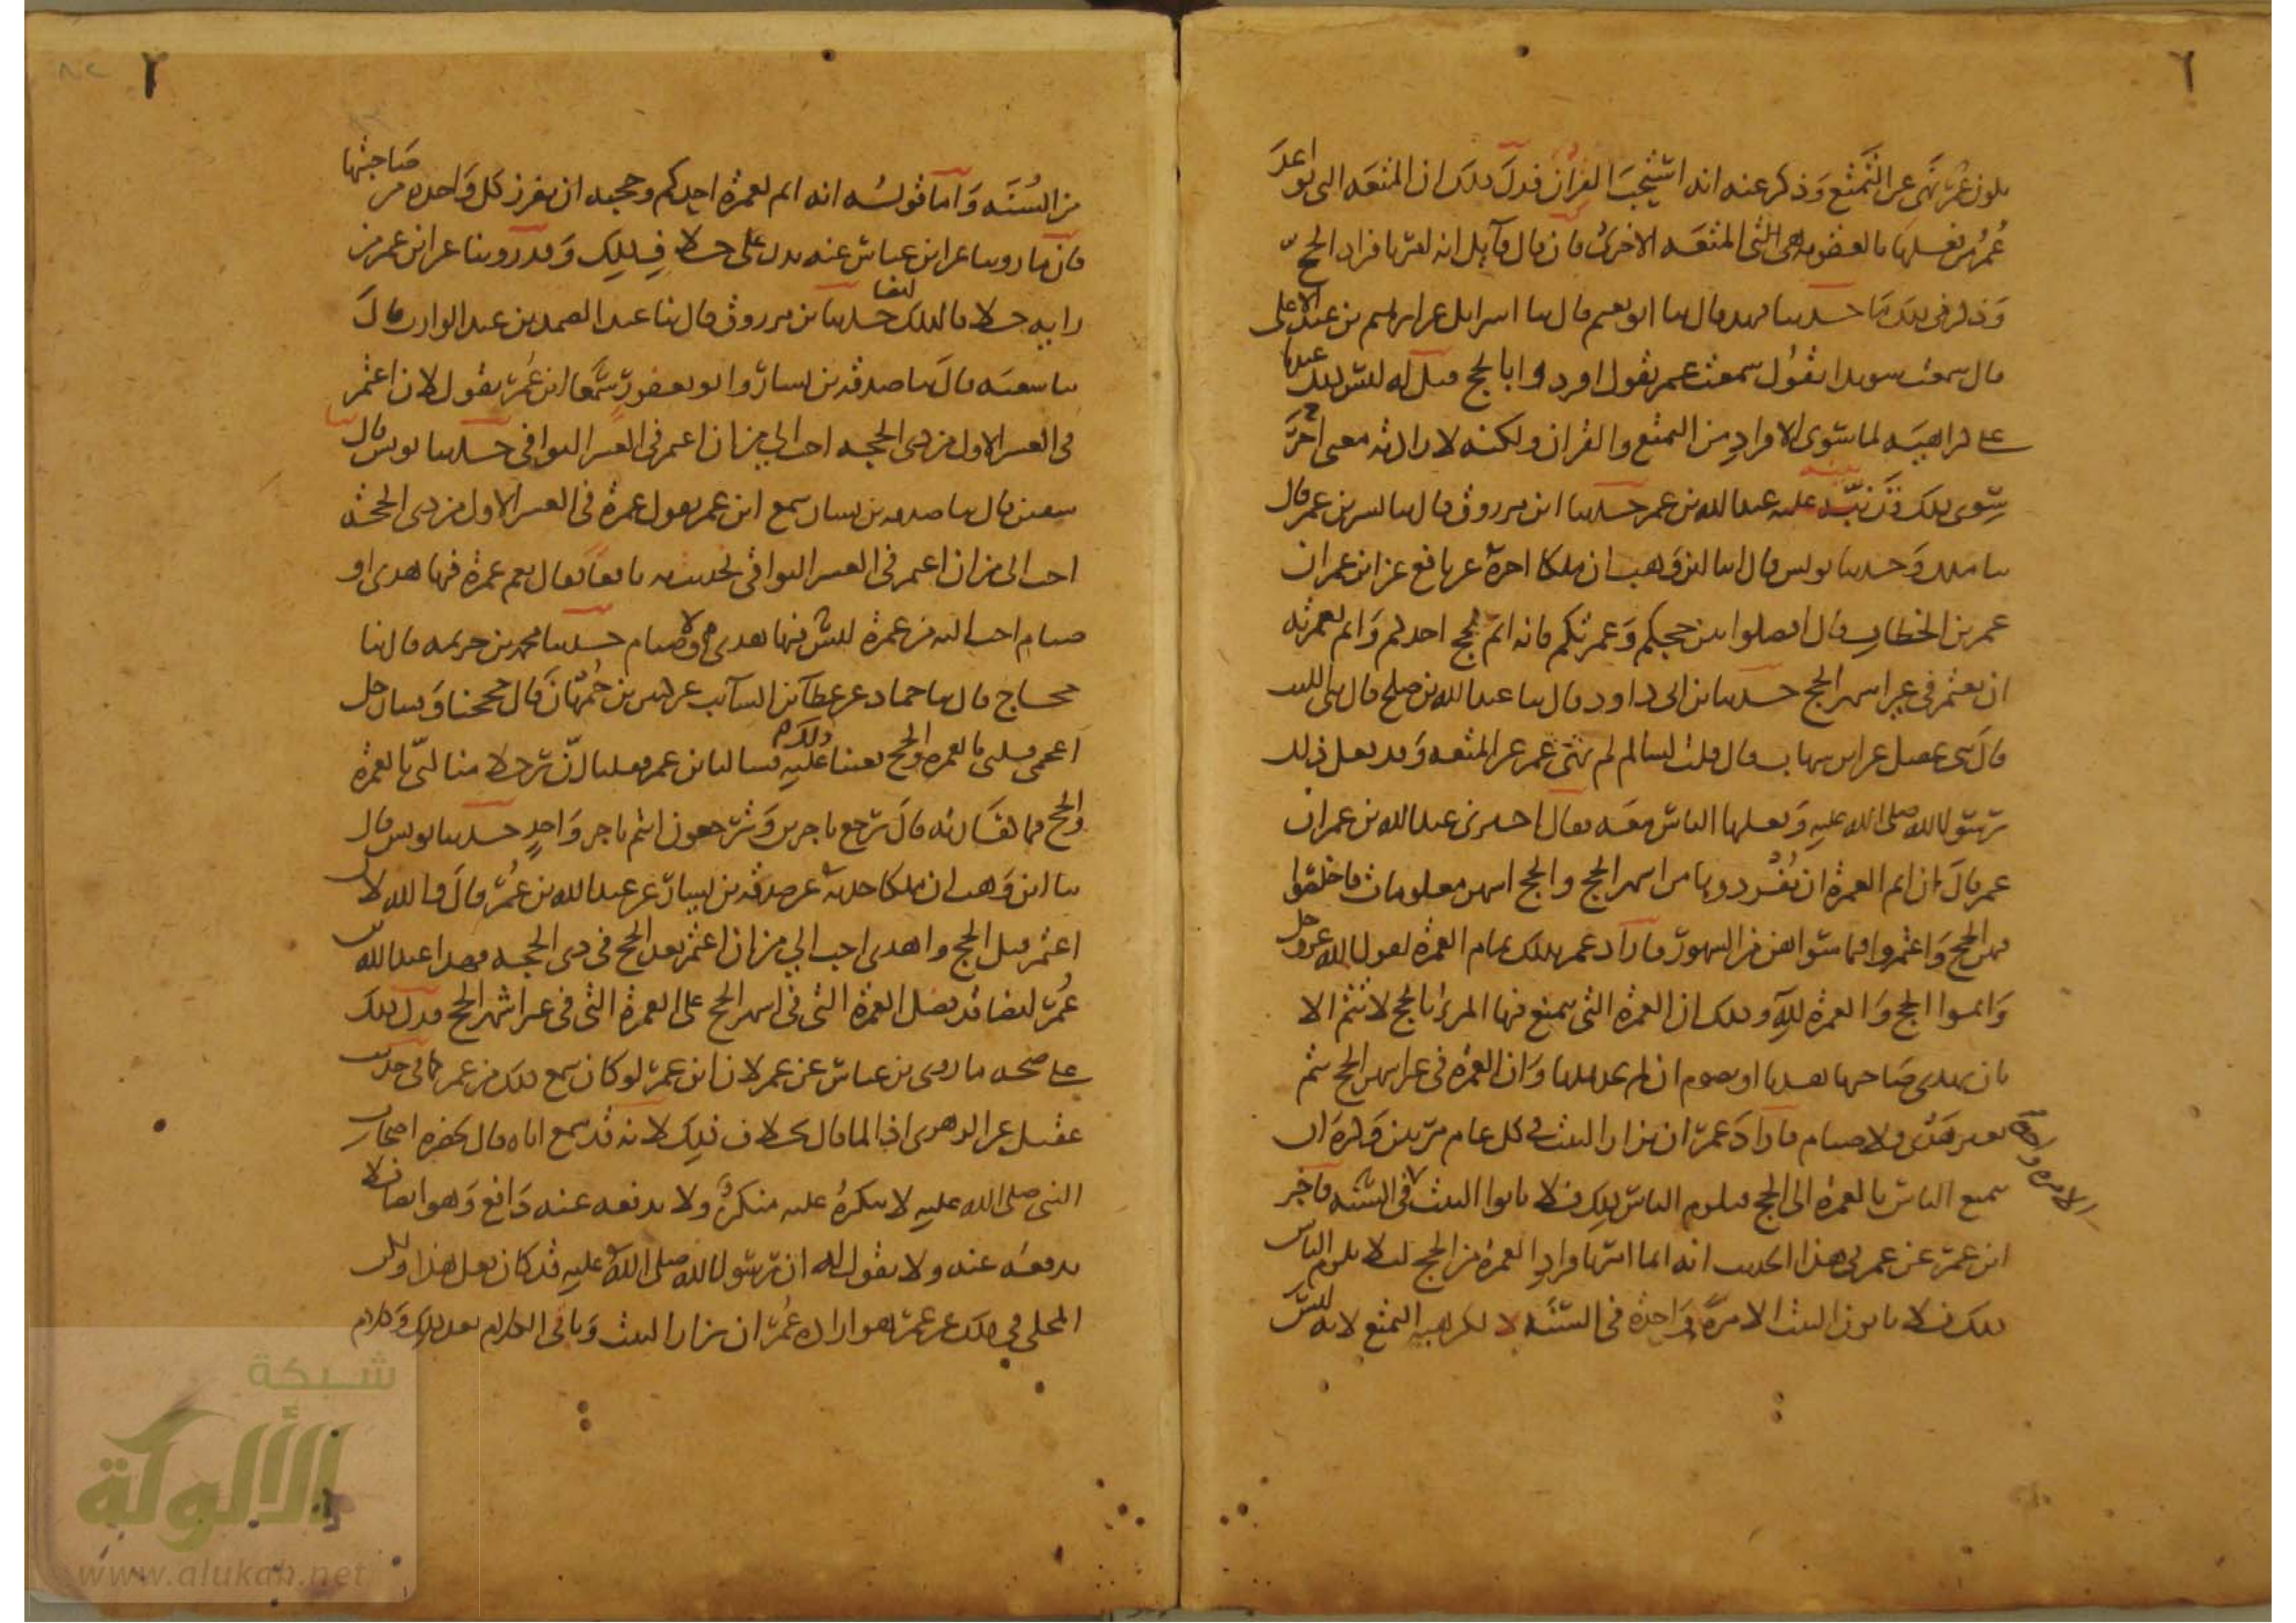 يكون عمر نهى عن التمتع وذكر عنه انه استحب القران فدل ذلك ان المتعه التى توعد
عمر من فعلها بالعقوبه هى المتعه الاخرى فان قال قائل انه امر بافراد الحج
وذكر فى ذلك ما حدثنا فهد قال ثنا ابو نعيم قال ثنا اسرايل عن ابراهيم بن عبد الاعلى
قال سمعت سويدا يقول سمعت عمر يقول افردوا بالحج قيل له ليس ذلك عندنا
على كراهيته لما سوى الافراد من التمتع والقران ولكنه لارادته معنى اخر
سوى ذلك قد بينه عنه عبد الله بن عمر حدثنا ابن مرزوق قال ثنا بشر بن عمر قال
ثنا ملك وحدثنا يونس قال انا ابن وهب ان ملكا اخبره عن نافع عن ابن عمر ان
عمر بن الخطاب قال افصلوا بين حجكم وعمرتكم فانه اتم لحج احدكم واتم لعمرته
ان يعتمر فى غير اشهر الحج حدثنا بن ابى داود قال ثنا عبد الله بن صلح قال ثنى الليث
قال ثنى عقيل عن ابن شهاب قال قلت لسالم لم نهى عمر عن المتعه وقد فعل ذلك
رسول الله صلى الله عليه وفعلها الناس معه فقال اخبرنى عبد الله بن عمر ان
عمر قال ان اتم العمرة ان تفردوها من اشهر الحج والحج اشهر معلومات فاخلصوا
فيهن الحج واعتمروا فيما سواهن من الشهور فاراد عمر بذلك تمام العمرة لقول الله عز وجل
واتموا الحج والعمرة لله وذلك ان العمرة التى يتمتع فيها المرء بالحج لا تتم الا
بان يهدى صاحبها هديا او يصوم ان لم يجد هديا وان العمرة فى غير اشهر الحج تتم
بغير هدى ولا صيام فاراد عمر ان يزار البيت فى كل عام مرتين وكره ان
يتمتع الناس بالعمرة الى الحج فيلزم الناس ذلك فلا ياتوا البيت الا مرة واحدة فى السنه فاخبر
ابن عمر عن عمر فى هذا الحديث انه انما امر بافراد العمرة من الحج لئلا يلزم الناس
ذلك فلا ياتون البيت الا مرة واحدة فى السنة لا لكراهيه التمتع لانه ليس
من السنه واما قوله انه اتم لعمرة احدكم وحجته ان يفرد كل واحده من صاحبتها
فان ما روينا عن ابن عباس عنه يدل على خلاف ذلك وقد روينا عن ابن عمر من
رايه خلافا لذلك ايضا حدثنا بن مرزوق قال ثنا عبد الصمد بن عبد الوارث قال
ثنا شعبه قال ثنا صدقه بن يسار وابو يعفور سمعا ابن عمر يقول لان اعتمر
فى العشر الاول من ذى الحجه احب الى من ان اعتمر فى العشر البواقى حدثنا يونس قال ثنا
سفين قال ثنا صدقه بن يسار سمع ابن عمر يقول عمرة فى العشر الاول من ذى الحجه
احب الى من ان اعتمر فى العشر البواقى فحدثت به نافعا فقال نعم عمرة فيها هدى او
صيام احب اليه من عمرة ليس فيها هدى ولا صيام حدثنا محمد بن خزيمه قال ثنا
حجاج قال ثنا حماد عن عطا بن السائب عن كثير بن جمهان قال حججنا وفينا رجل
اعجمى فلبى بالعمره والحج فعبنا ذلك عليه فسالنا بن عمر فقلنا ان رجلا منا لبى بالعمرة
والحج فما كفارته قال رجع باجرين وترجعون انتم باجر واحد حدثنا يونس قال
ثنا ابن وهب ان ملكا حدثه عن صدقه بن يسار عن عبد الله بن عمر قال والله لان
اعتمر قبل الحج واهدى احب الى من ان اعتمر بعد الحج فى ذى الحجه فهذا عبد الله بن
عمر ايضا قد فضل العمرة التى فى اشهر الحج على العمرة التى فى غير اشهر الحج فدل ذلك
على صحه ما روى بن عباس عن عمر لان ابن عمر لو كان سمع ذلك من عمر كما فى حديث
عقيل عن الزهرى اذا لما قال بخلاف ذلك لانه قد سمع اباه قال بحضره اصحاب
النبى صلى الله عليه لا ينكره عليه منكر ولا يدفعه عنه دافع وهو ايضا فلا
يدفعه عنه ولا يقول له ان رسول الله صلى الله عليه قد كان فعل هذا ولكن
المحكى فى ذلك عن عمر هو اراده عمر ان يزار البيت وباقى الكلام بعد ذلك وكلام
شبكة
الألوكة
www.alukah.net